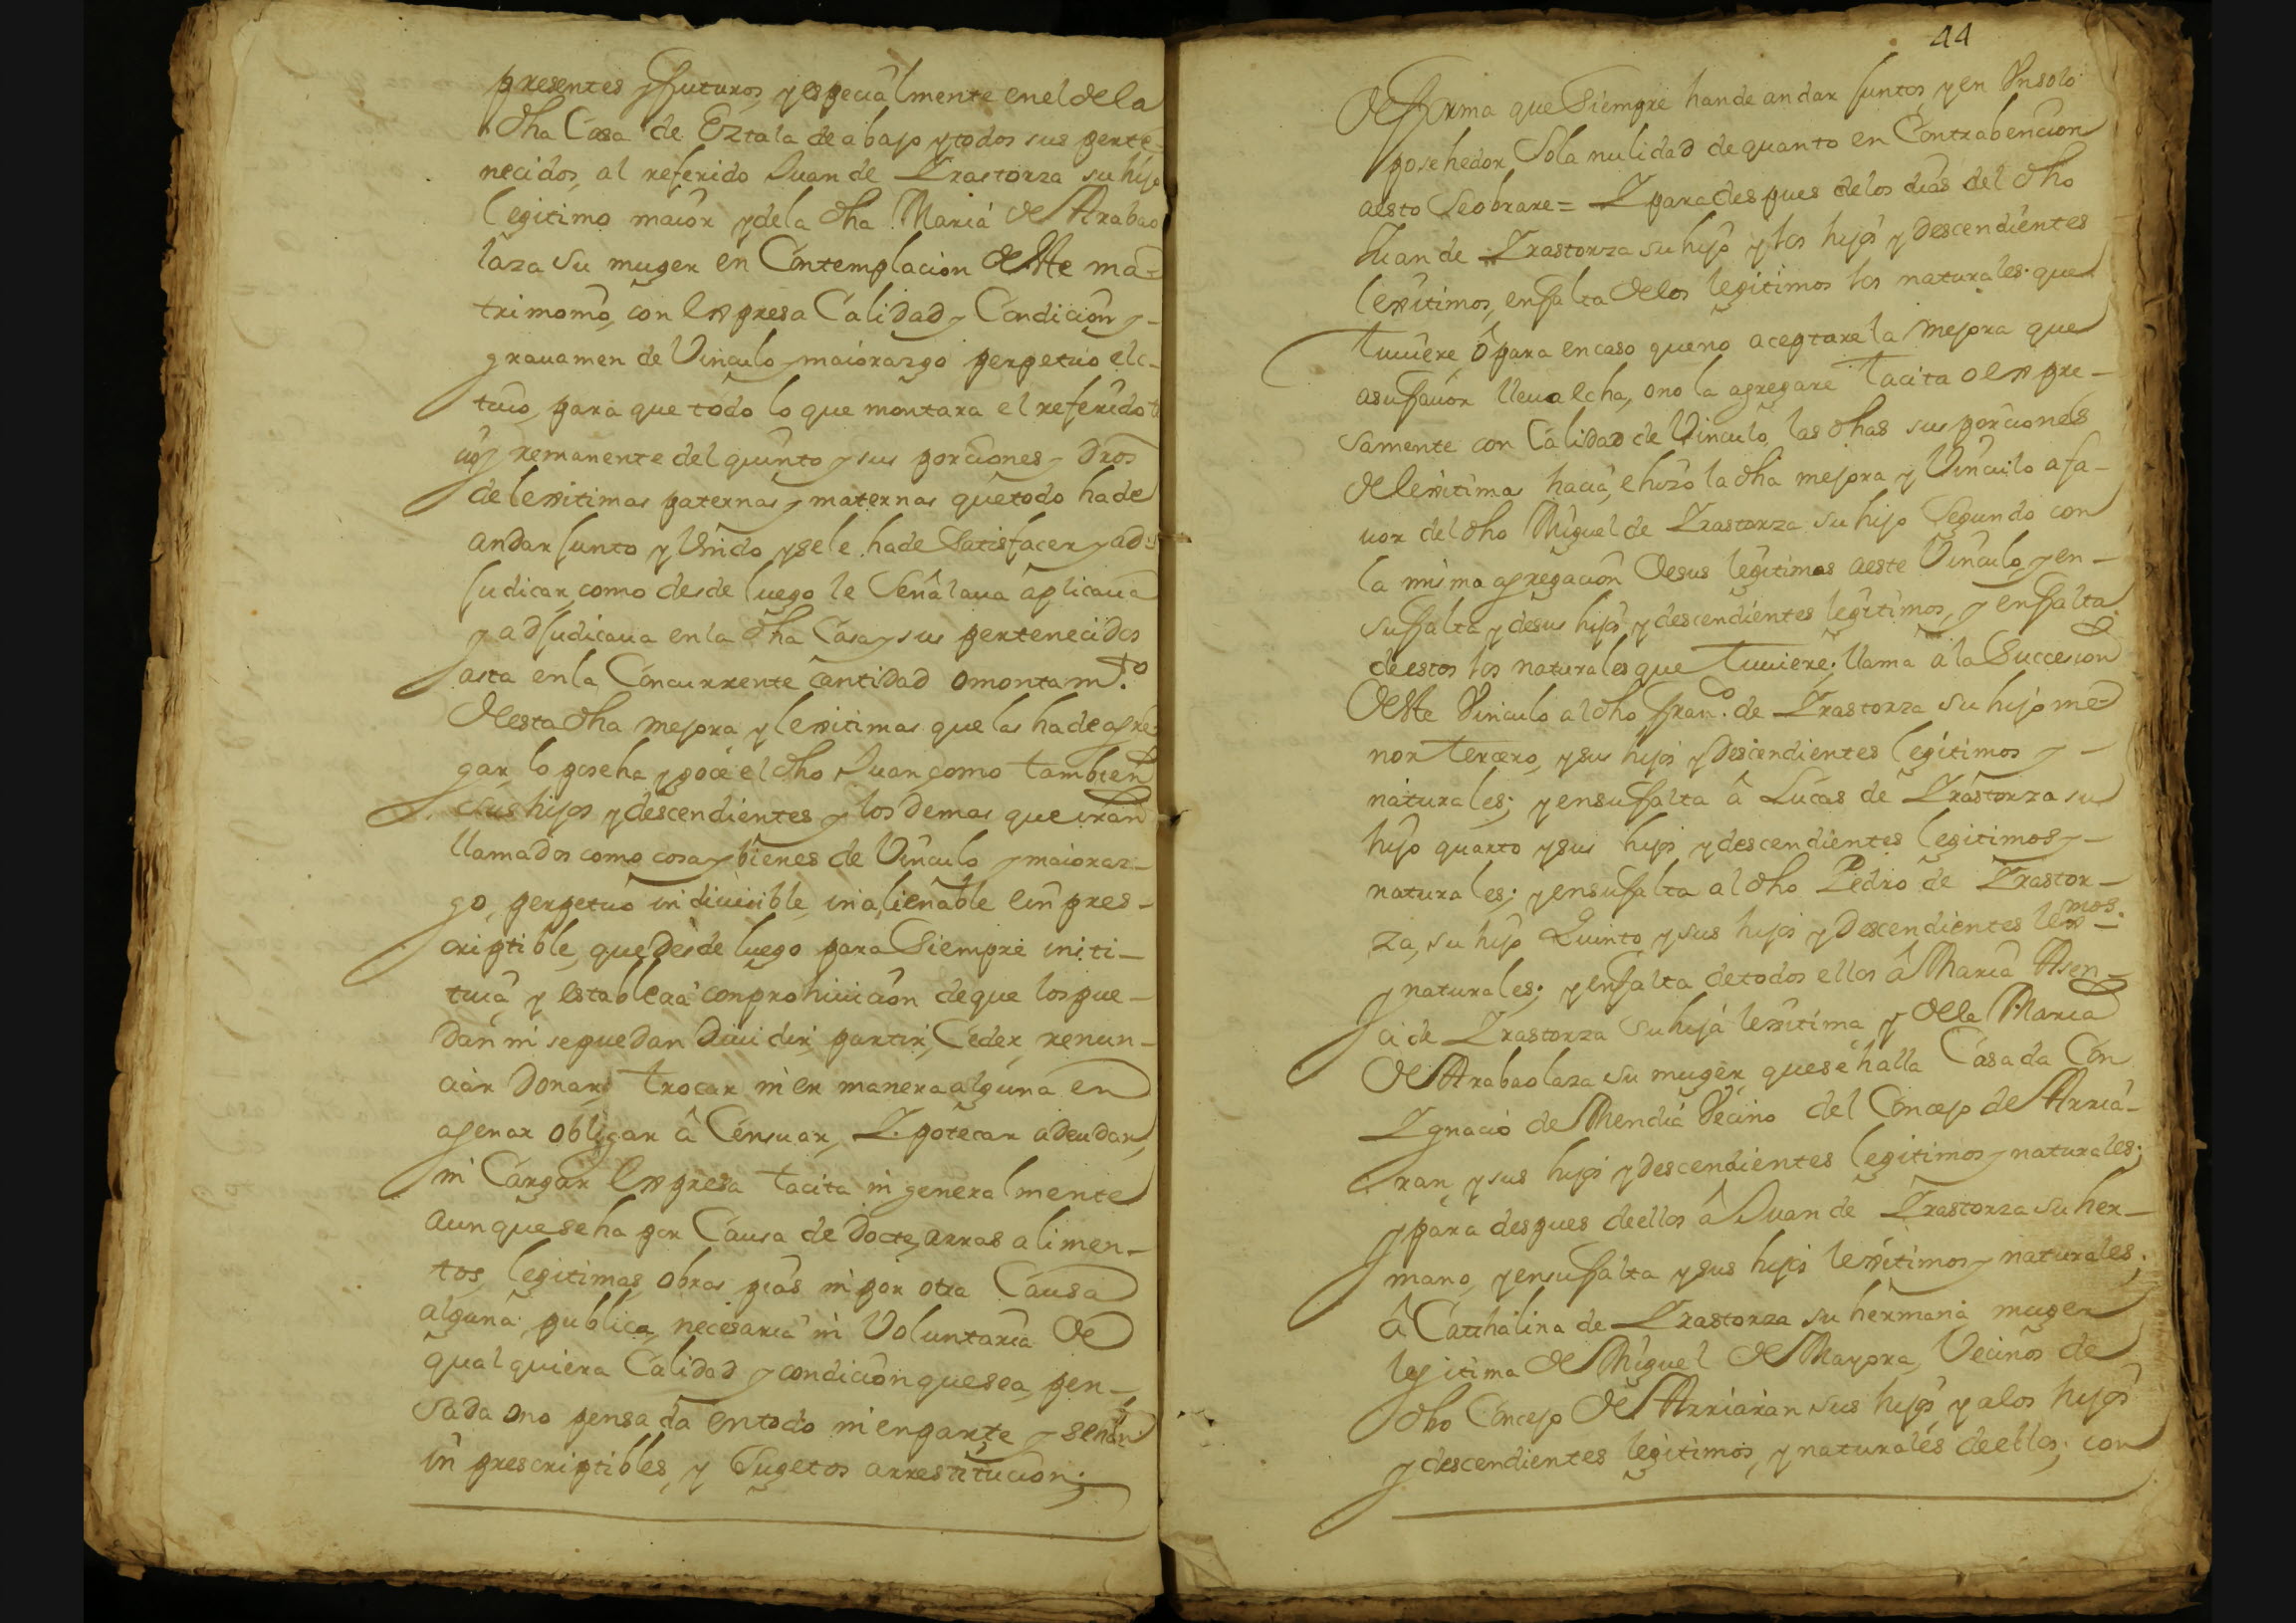 presentes y futuros, y especialmente en el de la
dha Casa de Eztala de abajo y todos sus perte-
necidos, al referido Juan de Yrastorza su hijo
legitimo maior y de la dha Maria de Arabao
laza su muger en Contemplacion deste ma-
trimonio, con expresa Calidad y Condicion y
grauamen de Vinculo y maiorazgo perpetuo elec-
tiuo, para que todo lo que montara el referido
y remanente del quinto y sus porciones y dros
de lexitimas paternas y maternas que todo ha de
andar junto y Vnido y se le ha de Satisfacer y ad-
judicar, como desde luego le Señalaua aplicaua
y adjudicaua en la dha Casa y sus pertenecidos
asta en la Concurrente cantidad o montamto
de esta dha mejora y lexitimas que las ha de agre-
gar, lo poseha y goce el dho Juan como tambien
sus hijos y descendientes y los demas que iran
llamados como cosa y bienes de Vinculo y maioraz-
go, perpetuo indiuisible, inalienable e inpres-
criptible, que desde luego para Siempre insti-
tuia y establecia con prohiuicion de que los pue-
dan ni se puedan Diuidir, partir, Ceder, renun-
ciar Donar, trocar ni en manera alguna en
agenar obligar â Censuar, Ypotecar adeudar,
ni Cargar expresa tacita ni generalmente
aunque se ha por Causa de Docte, arras alimen-
tos, legitimas, obras pias ni por otra Causa
alguna publica, necesaria ni Voluntaria de
qualquiera Calidad y condicion que sea, pen-
sada o no pensada en todo ni en parte y sean
inprescriptibles, y Sugetos a rrestitucion;
44
de forma que Siempre han de andar juntos, y en Vn solo
posehedor Sola nulidad de quanto en Contrabencion
a esto Se obrare = Y para despues de los dias del dho
Juan de Yrastorza su hijo y los hijos y descendientes
lexitimos, en falta de los legitimos los naturales que
tuuiere, ô para en caso que no aceptare la mejora que
a su fauor lleua echa, o no la agregare tacita o expre-
samente con Calidad de Vinculo, las dhas sus porciones
de lexitimas hacia, e hizo la dha mejora y Vinculo a fa-
uor del dho Miguel de Yrastorza su hijo Segundo con
la misma agregacion de sus legitimas a este Vinculo, y en
su falta y de sus hijos y descendientes legitimos, y en falta
de estos los naturales que tuuiere; llama â la Succesion
deste Vinculo al dho Franco. de Yrastorza su hijo me-
nor tercero, y sus hijos y descendientes legitimos y
naturales; y en su falta â Lucas de Yrastorza su
hijo quarto y sus hijos y descendientes legitimos y
naturales; y en su falta al dho Pedro de Yrastor-
za, su hijo Quinto y sus hijos y descendientes lexmos.
y naturales; y en falta de todos ellos â Maria Asen-
cia de Yrastorza su hija lexitima y de la Maria
de Arabaolaza su muger, que se halla Casada Con
Ygnacio de Mendia Vecino del Concejo de Arria-
ran, y sus hijos y descendientes legitimos y naturales;
y para despues de ellos â Juan de Yrastorza su her-
mano, y en su falta y sus hijos lexitimos y naturales;
â Catthalina de Yrastorza su hermana muger
legitima de Miguel de Mayora, Vecinos de
dho Concejo de Arriaran sus hijos, y a los hijos
y descendientes legitimos, y naturales de ellos; con